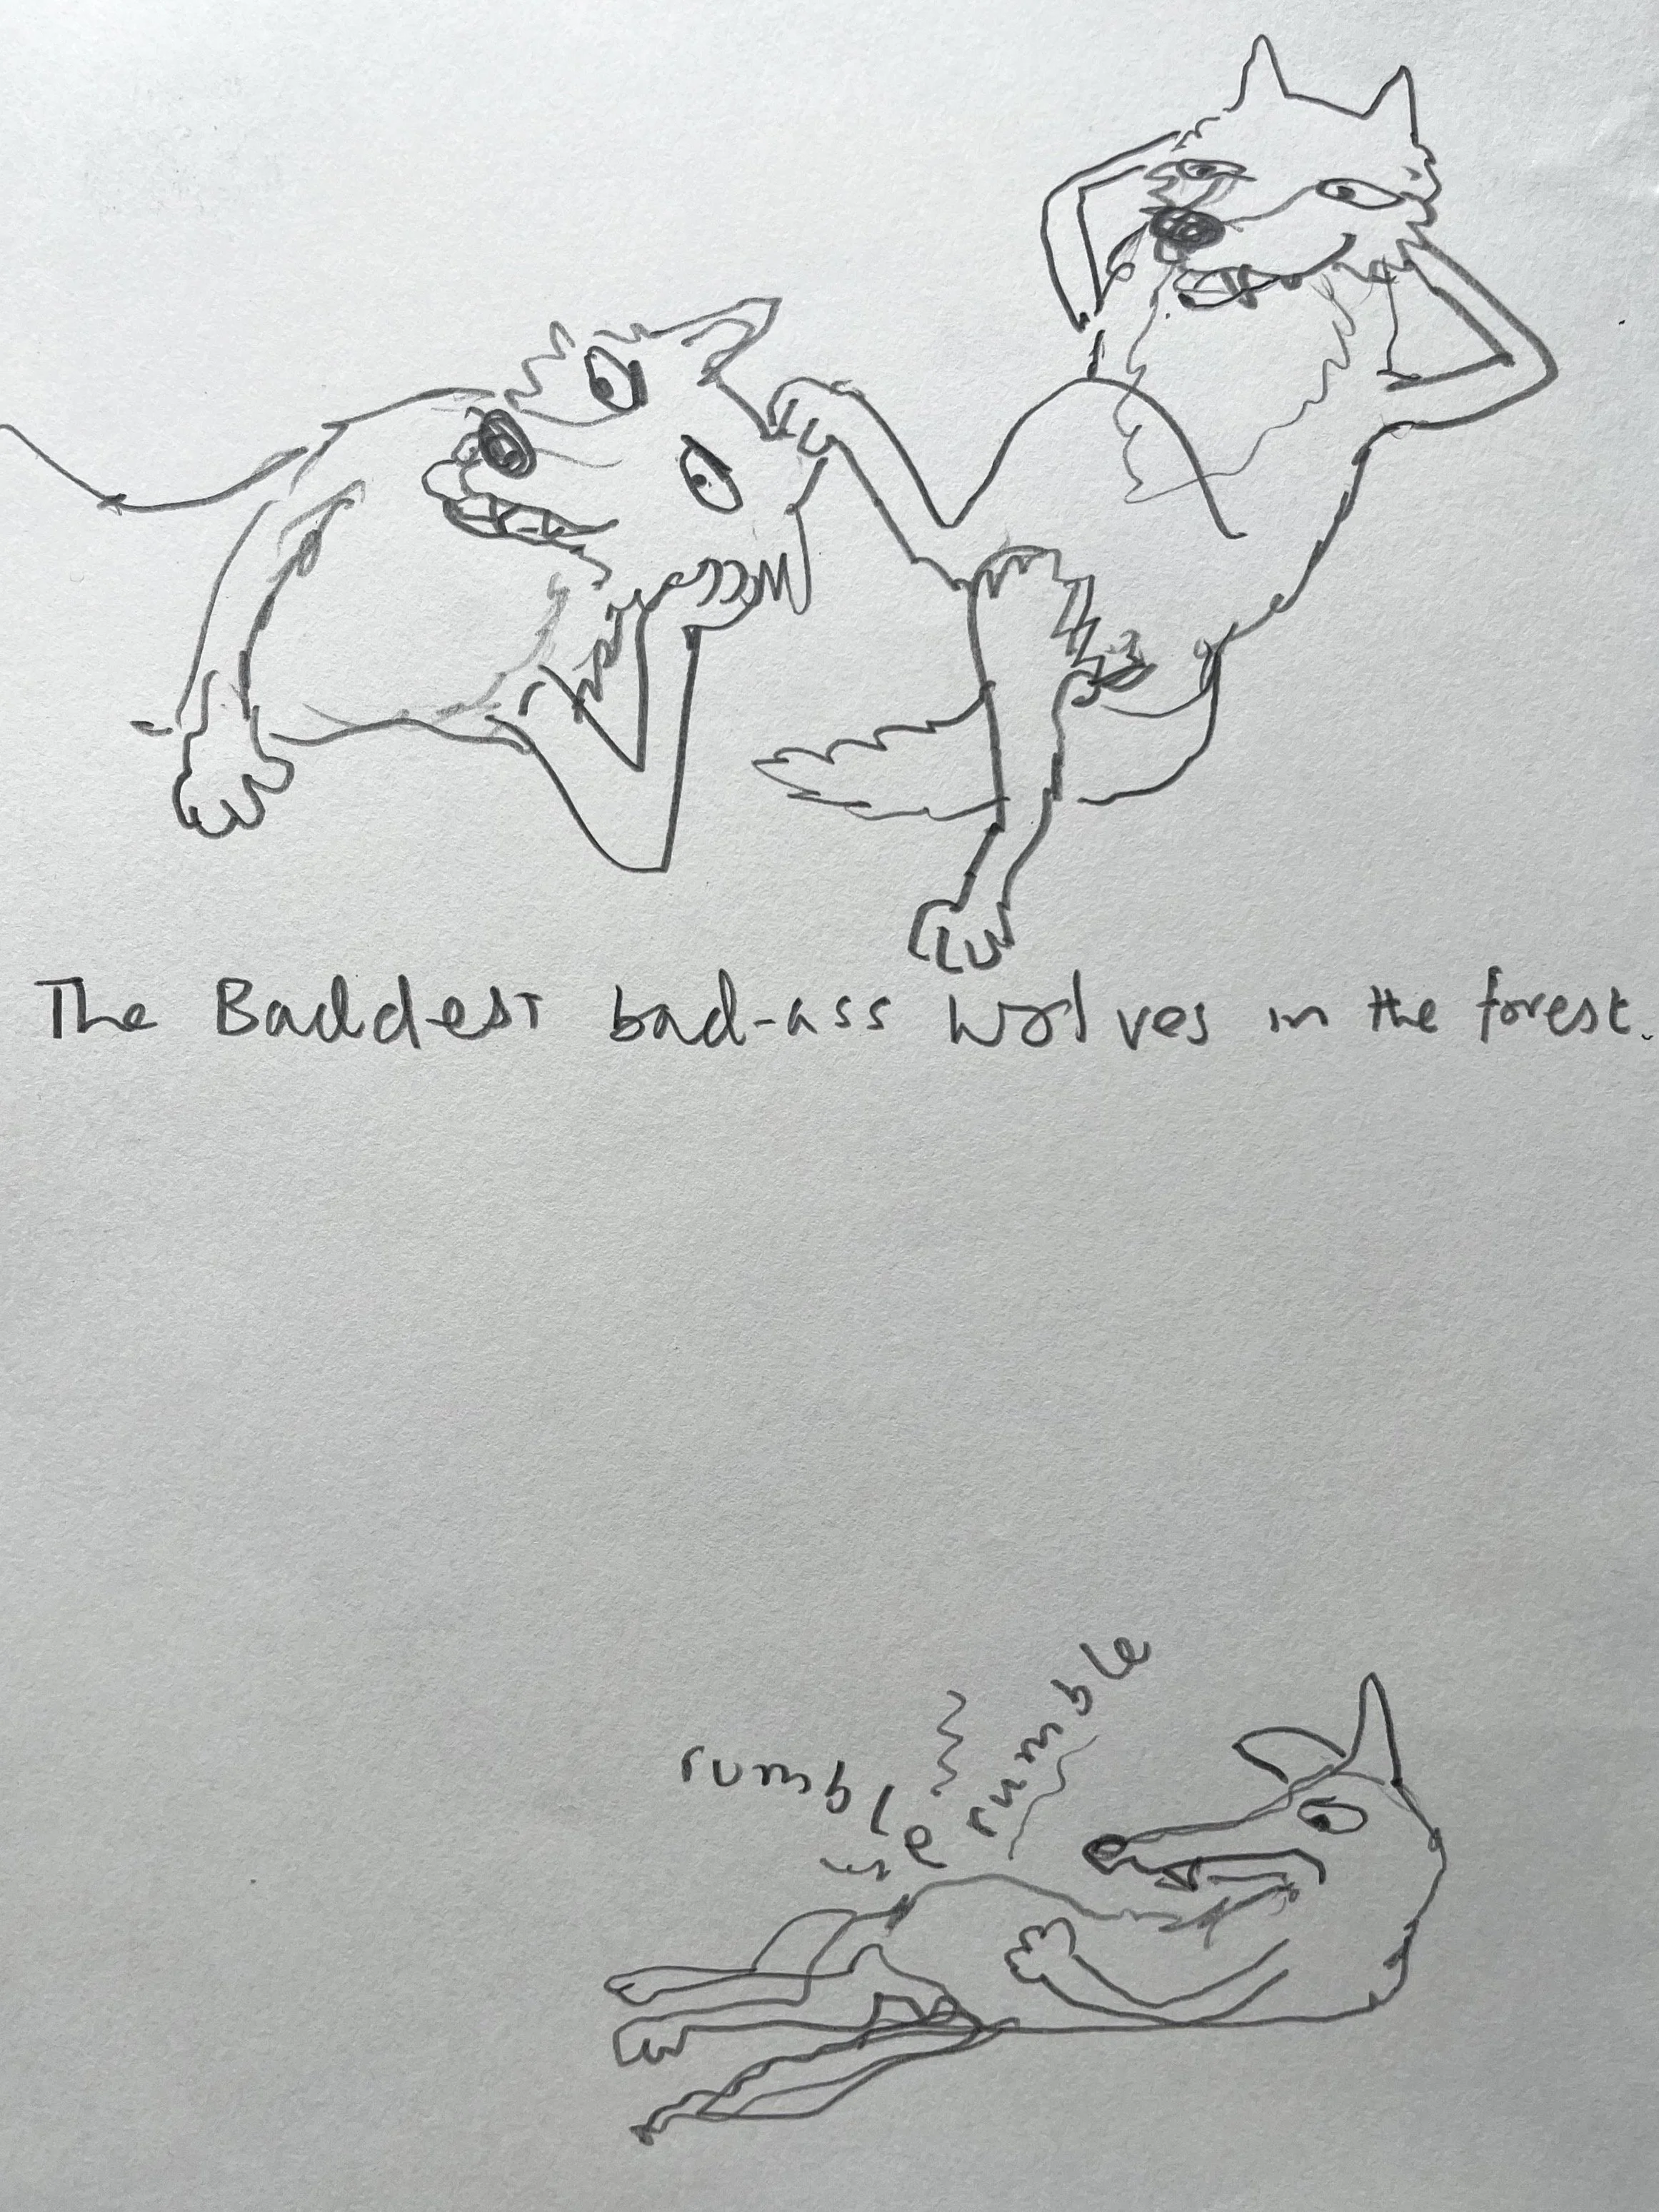 The Baddest bad-ass wolves in the forest.
rumble
rumble